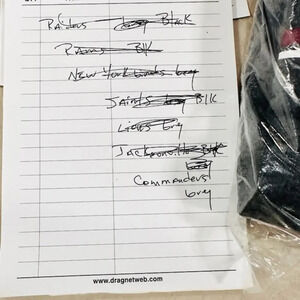 Raiders Grey Black
Rams Blk
New York Giants Grey
Saints Grey Blk
Lions Gry
Jacksonville Blk
Commanders
Grey
www.dragnetweb.com